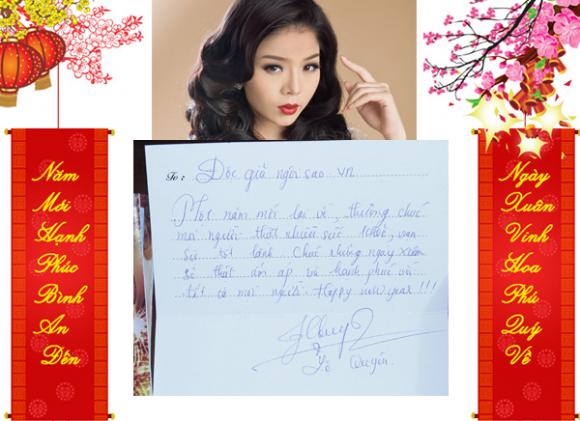 Năm
Mới
Hạnh
Phúc
Bình
An
Đến
To: Độc giả ngôi sao VN
Một năm mới lại về, chúc
mọi người thật nhiều sức khỏe, vạn
sự tốt lành. Chúc những ngày xuân
sẽ thật ấm áp và hạnh phúc với
tất cả mọi người. Happy new year!!!
Lệ Quyên
Ngày
Xuân
Vinh
Hoa
Phú
Quý
Về